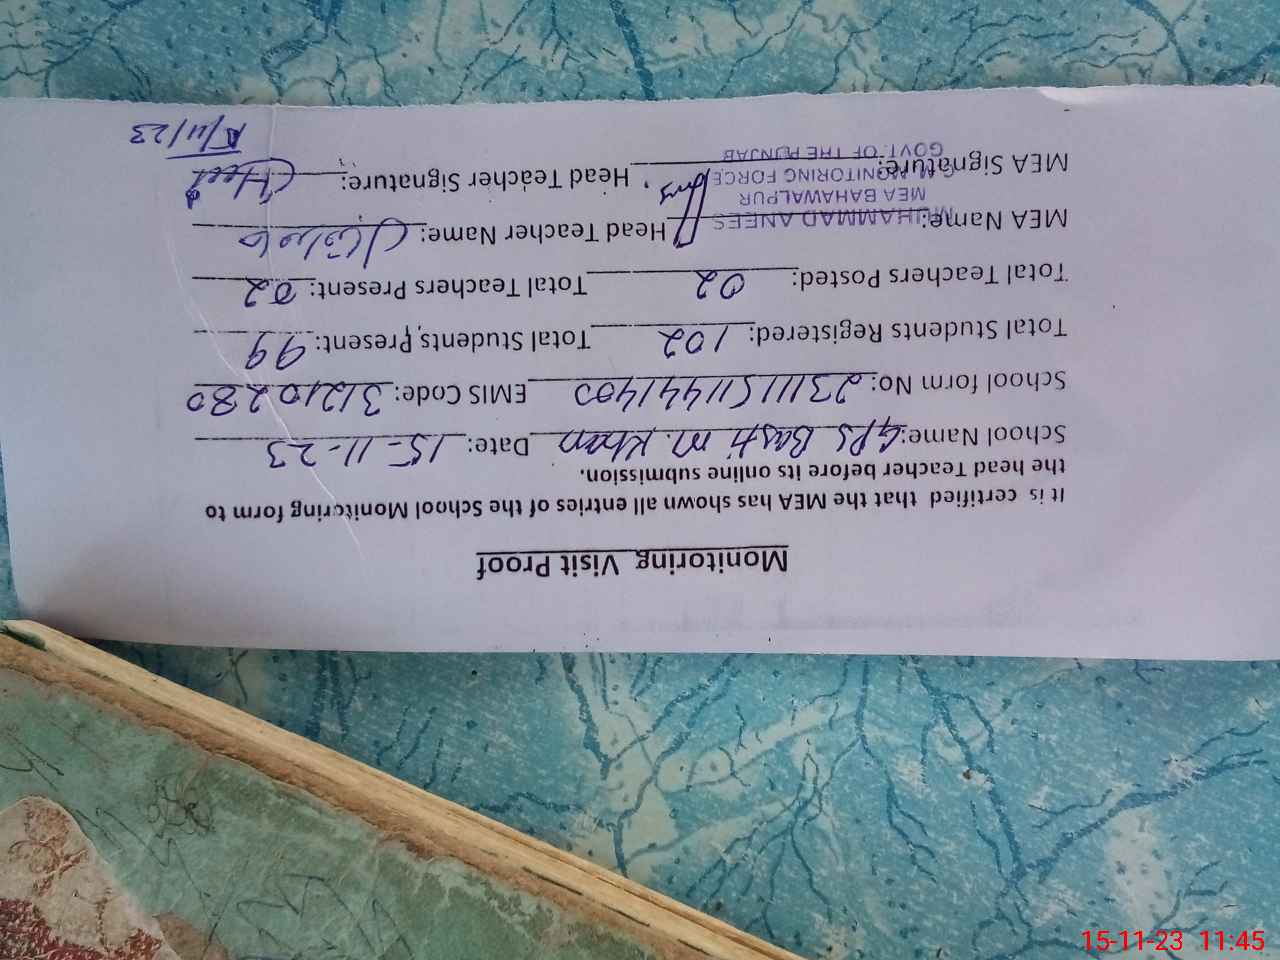 Monitoring Visit Proof
It is certified that the MEA has shown all entries of the School Monitoring form to
the head Teacher before its online submission.
School Name: GPS Basti M. Khan Date: 15-11-23
School form No: 23111511441400 EMIS Code: 31210280
Total Students Registered: 102 Total Students Present: 99
Total Teachers Posted: 02 Total Teachers Present: 02
MEA Name: MUHAMMAD ANEES Head Teacher Name:
MEA BAHAWALPUR
MONITORING FORCE
MEA Signature: Head Teacher Signature:
GOVT. OF THE PUNJAB
15/11/23
15-11-23 11:45